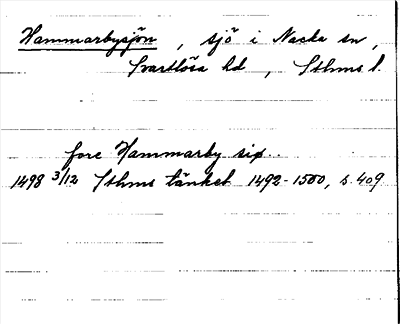 Hammarbysjön, sjö i Nacka sn,
Svartlösa hd, Sthms l.
fore Hammarby siø
1498 3/12 Sthms tänkeb 1492-1500, s. 409